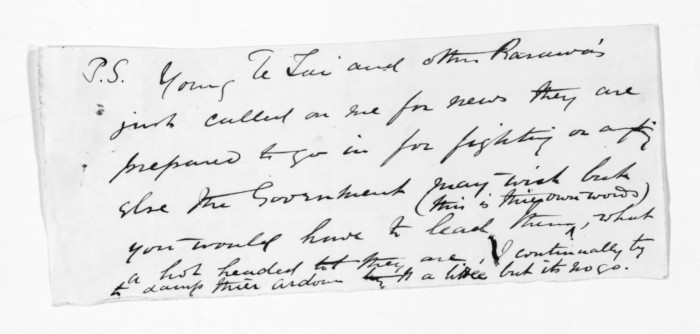 P.S. Young Te Tai and other Rarawa's
just called on me for news they are
prepared to go in for fighting or any
else the Government may wish but
(this is their own words)
you would have to lead them, what
a hot headed lot they are, I continually try
to damp their ardour a little but its no go.